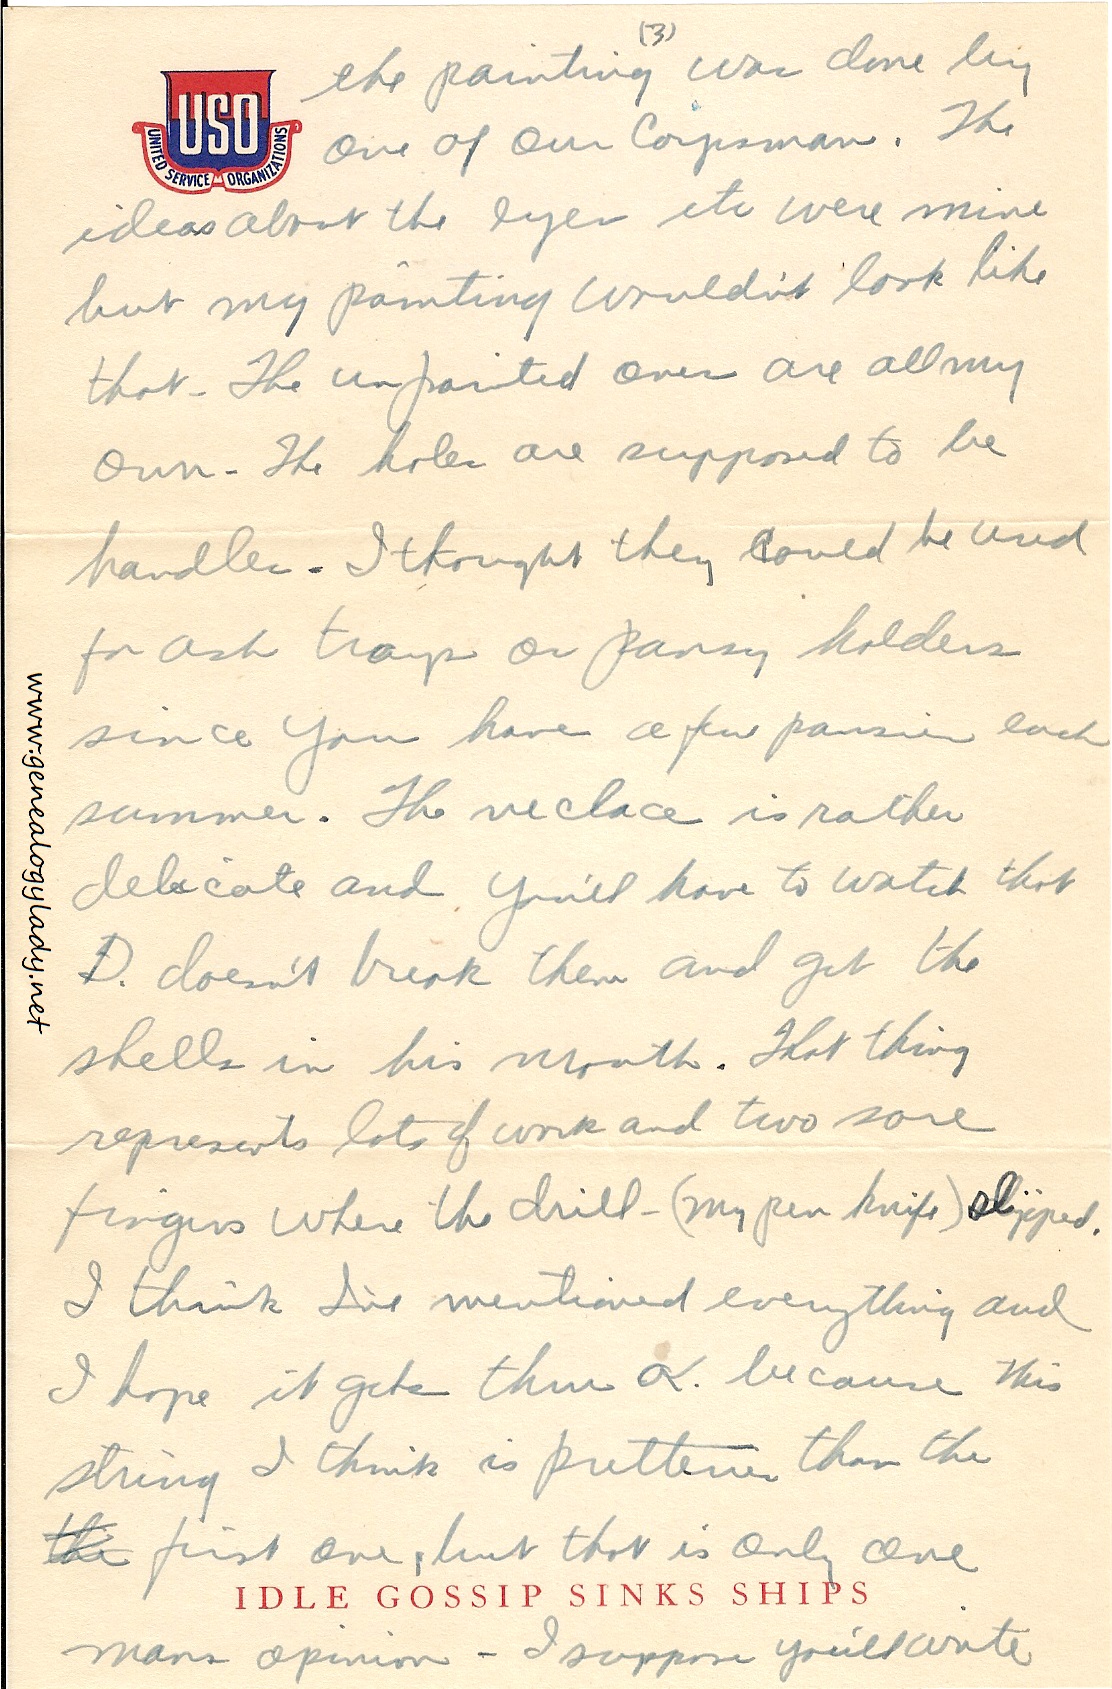 (3)
the painting was done by
USO
UNITED SERVICE ORGANIZATIONS
one of our Corpsman. The
ideas about the eyes etc were mine
but my painting wouldn't look like
that - The unpainted ones are all my
own - The holes are supposed to be
handles - I thought they could be used
for ash trays or pansy holders
since you have a few pansies each
summer. The neclace is rather
delicate and you'll have to watch that
D. doesn't break them and get the
shells in his mouth. That thing
represents lots of work and two sore
fingers where the drill - (my pen knife) slipped.
I think I've mentioned everything and
I hope it gets thru OK. because this
string I think is prettier than the
the first one, but that is only one
IDLE GOSSIP SINKS SHIPS
mans opinion - I suppose you'll write
www.genealogylady.net